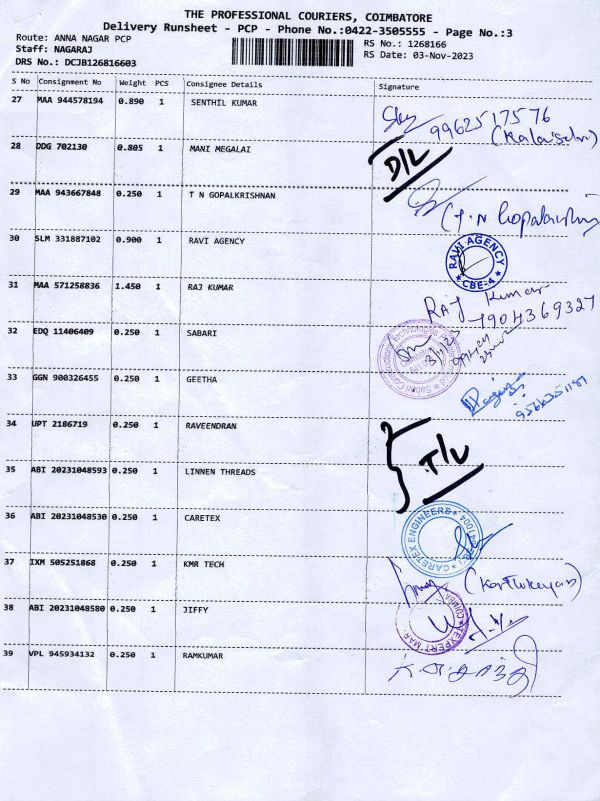 THE PROFESSIONAL COURIERS, COIMBATORE
Delivery Runsheet - PCP - Phone No.:0422-3505555 - Page No.:3
Route: ANNA NAGAR PCP
RS No.: 1268166
Staff: NAGARAJ
RS Date: 03-Nov-2023
DRS No.: DCJB126816603
S No Consignment No Weight PCS Consignee Details Signature
27 MAA 944578194 0.890 1 SENTHIL KUMAR
9962517576
(Kalaiselvi)
28 DDG 702130 0.805 1 MANI MEGALAI D/L
29 MAA 943667848 0.250 1 T N GOPALKRISHNAN
(T.N Gopalakrishnan
30 SLM 331887102 0.900 1 RAVI AGENCY
RAVI AGENCY
CBE-4
31 MAA 571258836 1.450 1 RAJ KUMAR
RAJ Kumar
7904369327
32 EDQ 11406409 0.250 1 SABARI
3/11/23
33 GGN 900326455 0.250 1 GEETHA
34 UPT 2186719 0.250 1 RAVEENDRAN
T/L
35 ABI 20231048593 0.250 1 LINNEN THREADS
36 ABI 20231048530 0.250 1 CARETEX
CARETEX ENGINEERS
37 IXM 505251868 0.250 1 KMR TECH
(Karthikeyan)
38 ABI 20231048580 0.250 1 JIFFY
39 VPL 945934132 0.250 1 RAMKUMAR